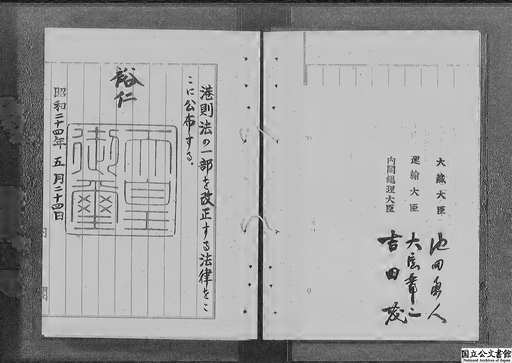 港則法の一部を改正する法律をこ
こに公布する。
裕仁
天皇
御璽
昭和二十四年五月二十四日
内閣
大藏大臣 池田勇人
運輸大臣 大屋晋三
内閣總理大臣 吉田茂
国立公文書館
National Archives of Japan